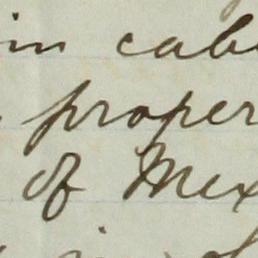 in cab
proper
of Mex